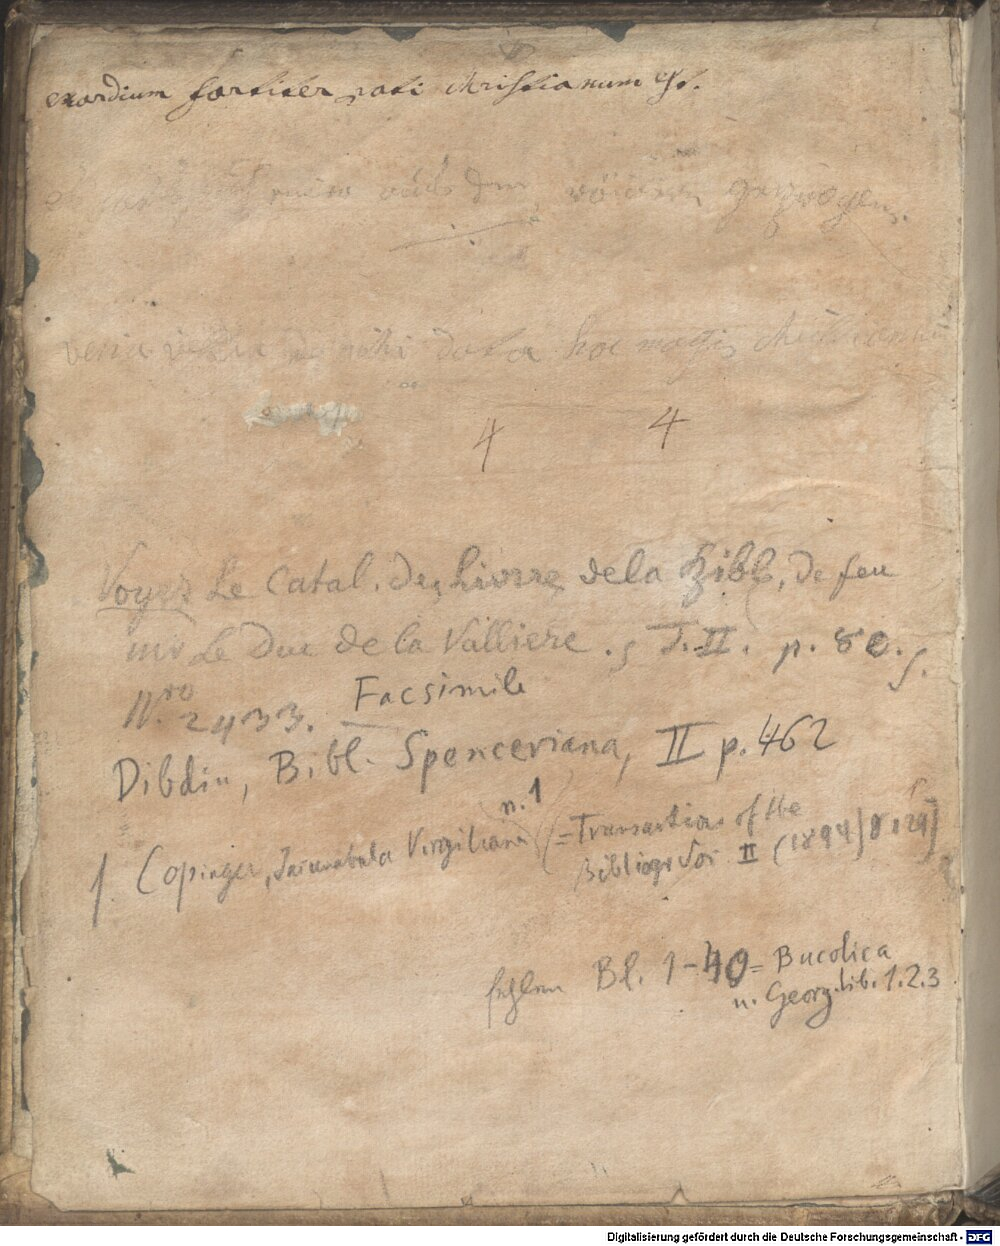 exordium fortiter pati christianum est.
gezwogen.
venia vestra data hoc magis
4 4
Voyez Le Catal. des Livres de la Bibl. de feu
mr Le Duc de la Valliere. T. II. p. 80.
Nro 2433. Facsimile
Dibdin, Bibl. Spenceriana, II p. 462
n. 1
f. Copinger, Incunabula Virgiliana (= Transactions of the
Bibliogr Soc II (1894)
fehlen Bl. 1-40 = Bucolica
u. Georg. lib. 1.2.3
Digitalisierung gefördert durch die Deutsche Forschungsgemeinschaft - DFG